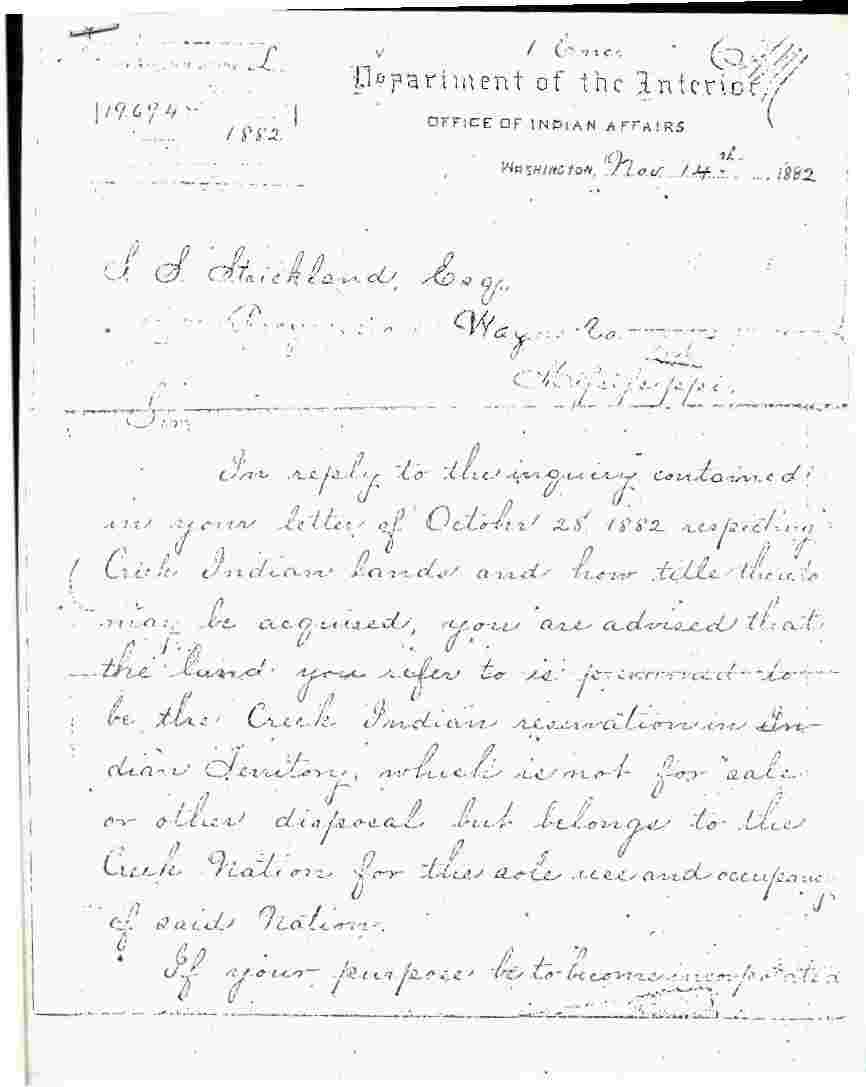 L.
19694
1882
Department of the Interior,
OFFICE OF INDIAN AFFAIRS
WASHINGTON, Nov. 14th 1882
S. S. Strickland, Esq.
Wayne Co.
Mississippi.
Sir:
In reply to the inquiry contained
in your letter of October 28, 1882 respecting
Creek Indian lands and how title thereto
may be acquired, you are advised that
the land you refer to is presumed to
be the Creek Indian reservation in In-
dian Territory, which is not for sale
or other disposal but belongs to the
Creek Nation for the sole use and occupancy
of said Nation.
If your purpose be to become incorporated